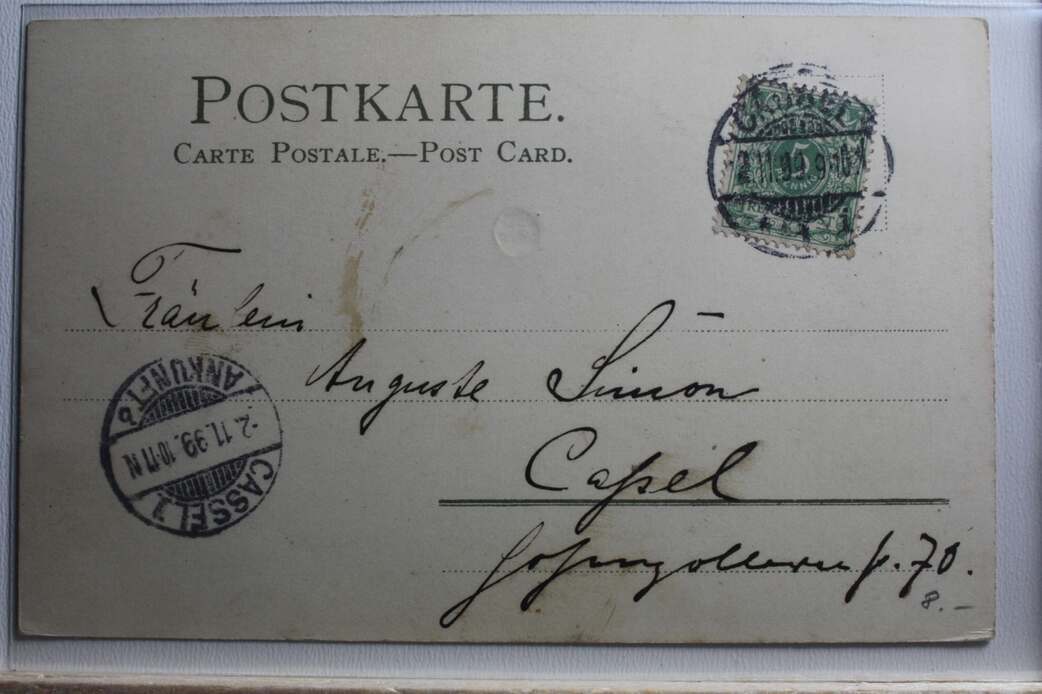 POSTKARTE.
CARTE POSTALE.—POST CARD.
CASSEL
2.11.99.9-10N
5
Fräulein
Auguste Simon
Caſsel
Hohenzollernſtr. 70.
8.–
ANKUNFT
-2.11.99.10-11N
CASSEL 1